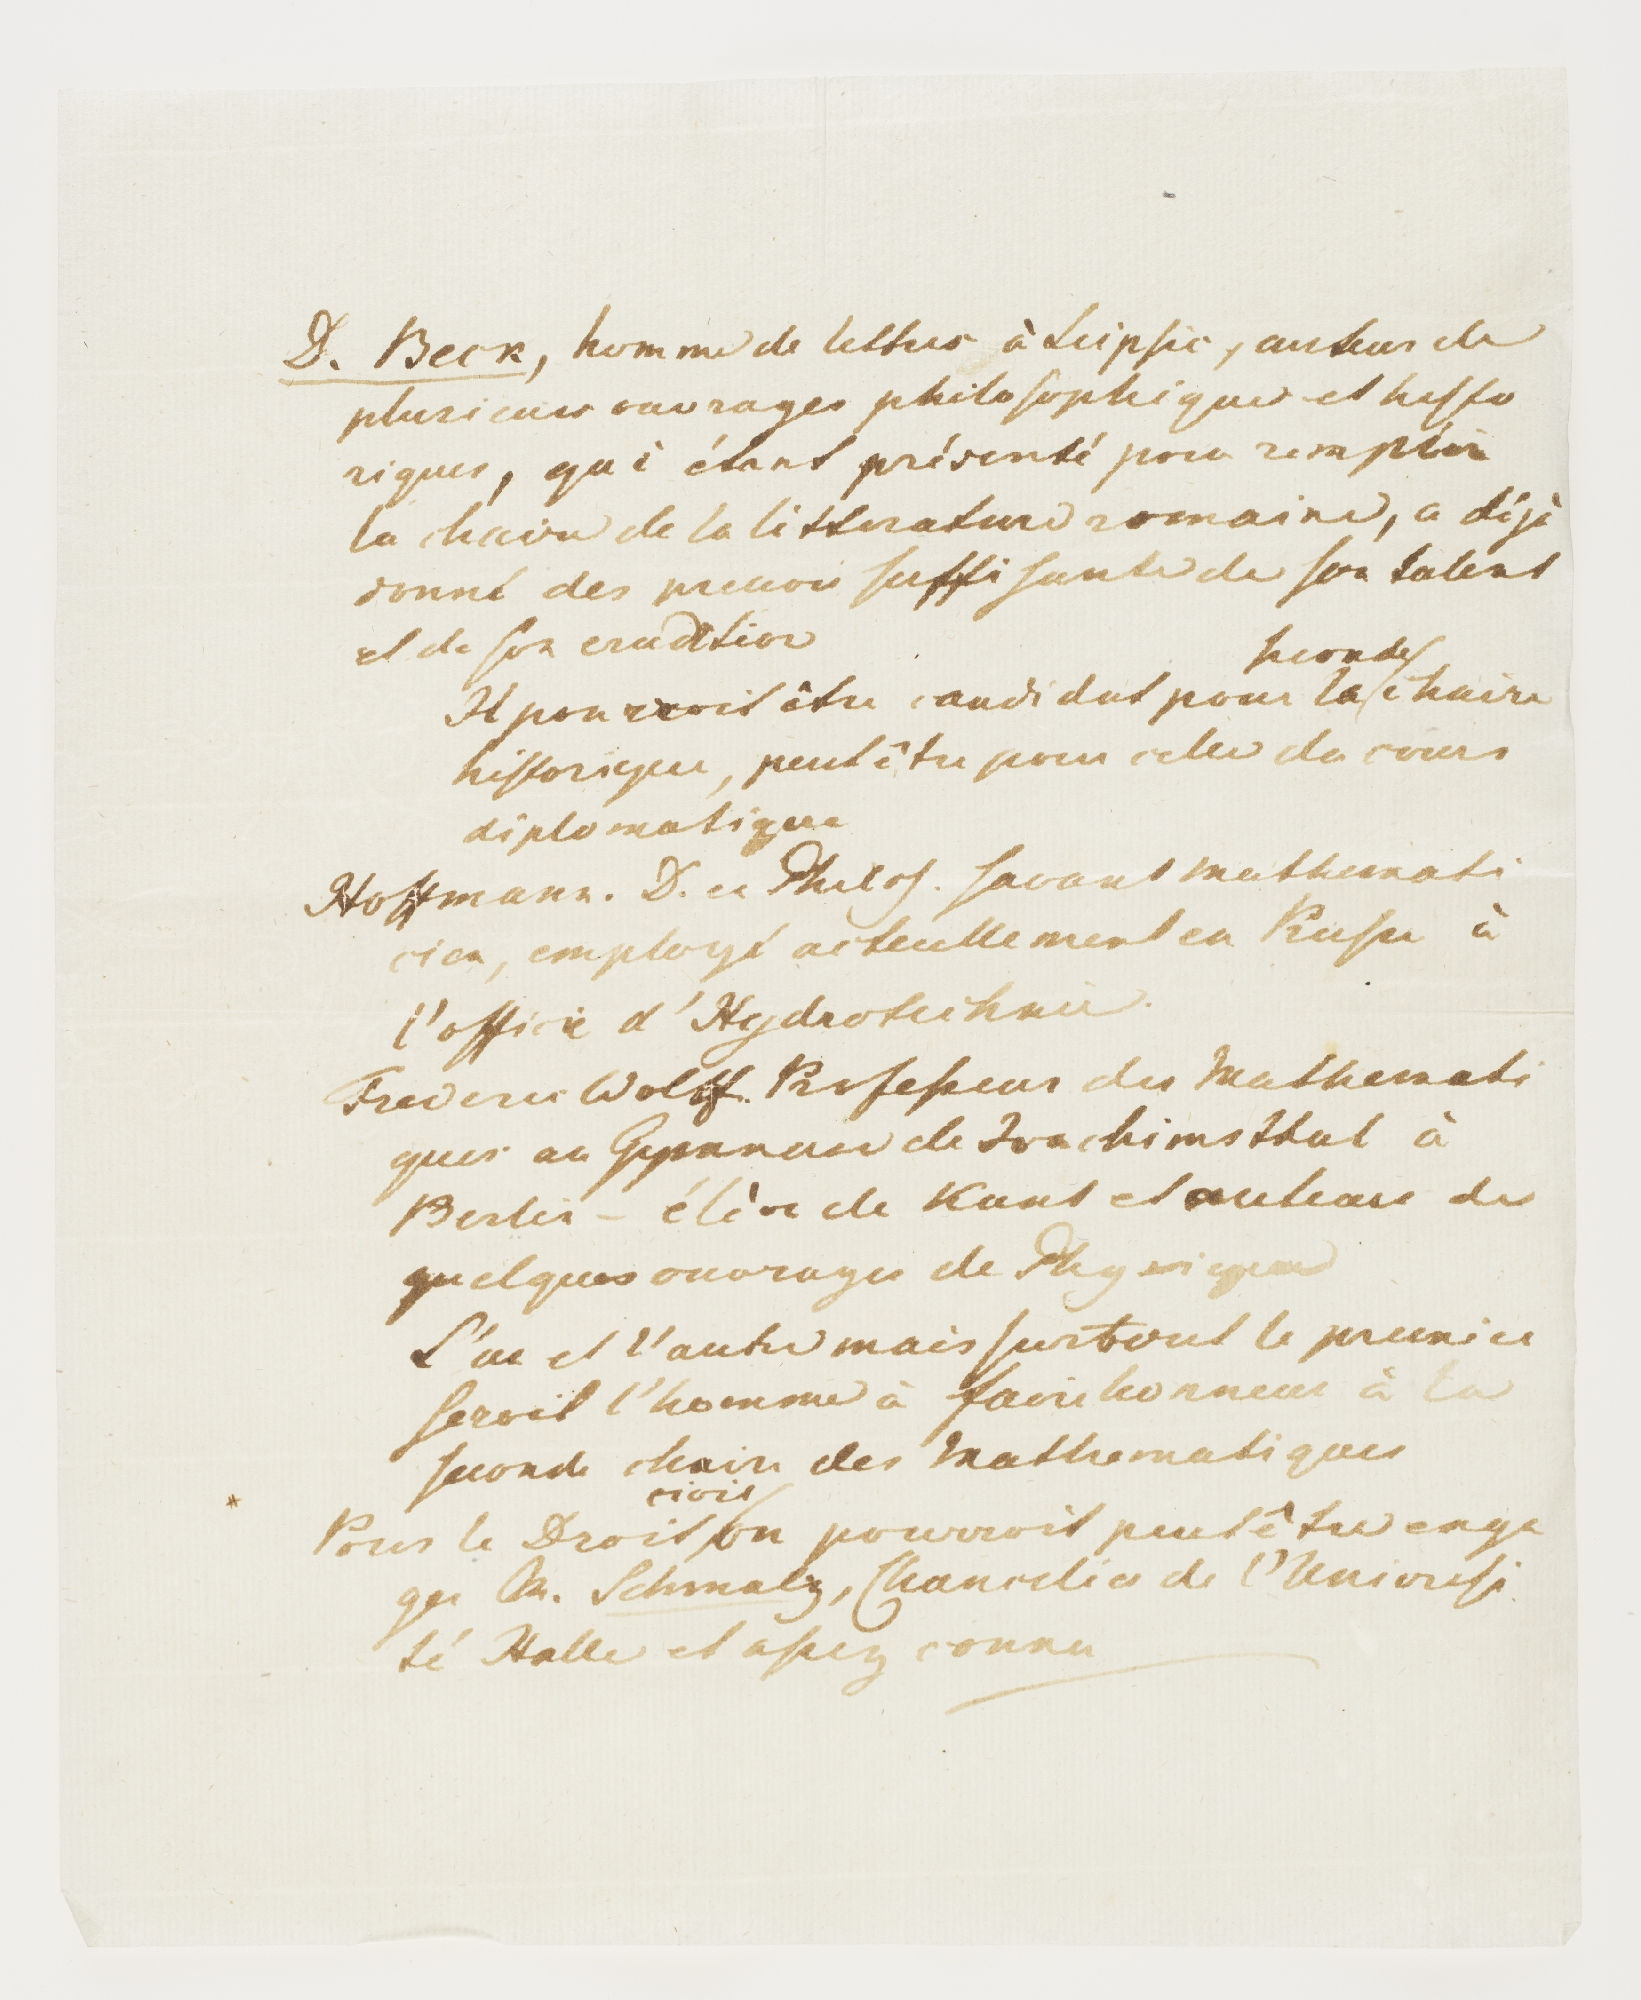 D. Beck, homme de lettres à Leipsic, auteur de
plusieurs ouvrages philosophiques et histo
riques, qui étant présenté pour remplir
la chaire de la litterature romaine, a déjà
donné des preuves suffisante de son talent
et de son erudition
seconde
Il pourroit être candidat pour la chaire
historique, peutêtre pour celle du cours
diplomatique
Hoffmann. D. en Philos. savant mathemati
cien, employé actuellement en Russie à
l'office d'Hydrotechnie.
Frederic Wolff. Professeur des Mathemati
ques au Gymnase de Joachimsthal à
Berlin – élève de Kant et auteur de
quelques ouvrages de Physique
L'un et l'autre mais surtout le premier
seroit l'homme à faire honneur à la
seconde chaire des Mathematiques
civil
Pour le Droit on pourroit peutêtre enga
ger Mr. Schmalz, Chancelier de l'Universi
té Halle et assez connu